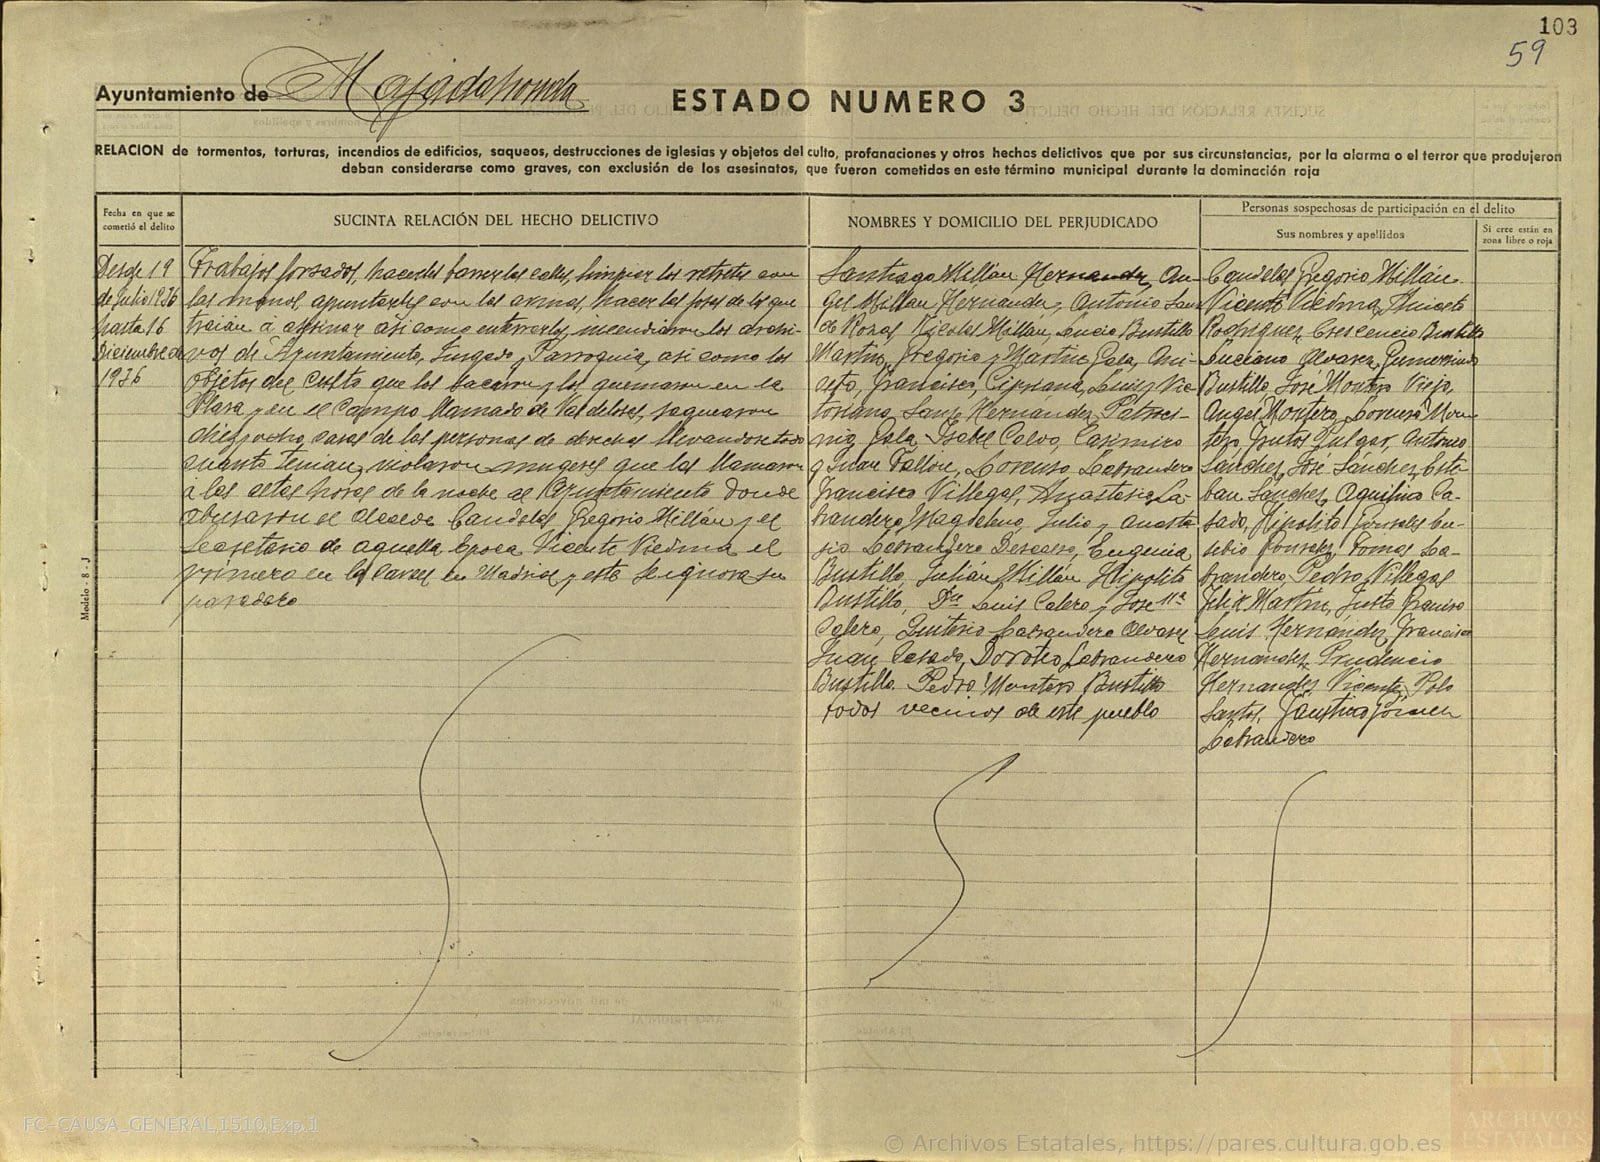 103
59
Ayuntamiento de Majadahonda
ESTADO NUMERO 3
RELACION de tormentos, torturas, incendios de edificios, saqueos, destrucciones de iglesias y objetos del culto, profanaciones y otros hechos delictivos que por sus circunstancias, por la alarma o el terror que produjeron
deban considerarse como graves, con exclusión de los asesinatos, que fueron cometidos en este término municipal durante la dominación roja
Fecha en que se
cometió el delito
SUCINTA RELACIÓN DEL HECHO DELICTIVO
NOMBRES Y DOMICILIO DEL PERJUDICADO
Personas sospechosas de participación en el delito
Sus nombres y apellidos
Si cree están en
zona libre o roja
Desde 19
de Julio 1936
hasta 16
Diciembre de
1936
Trabajos forzados, hacerles barrer las calles, limpiar los retretes con
las manos, apuntarles con las armas, hacer las fosas de los que
traian á asesinar asi como enterrarles, incendiaron los archi-
vos de Ayuntamiento, Juzgado y Parroquia, asi como los
objetos del culto que los sacaron y los quemaron en la
Plaza y en el Campo llamado de Valdeloses, saquearon
diez y ocho casas de las personas de derechas llevandose todo
cuanto tenian, violaron mugeres que las llamaron
á las altas horas de la noche al Ayuntamiento donde
abusaron el alcalde Candelas Gregorio Millán y el
Secretario de aquella epoca Vicente Viedma el
primero en la carcel en Madrid y este se ignora su
paradero
Santiago Millán Hernandez, An-
gel Millan Hernandez, Antonio Sanz
de Rozas Nicolas Millán, Lucio Bustillo
Martin, Gregorio y Martin Gala, Ani-
ceto, Francisco, Cipriana, Luis, Vic-
toriano Sanz Hernández, Patroci-
nio Gala, Isabel Calvo, Casimiro
y Juan Labrandero
Francisco Villegas, Anastasio La-
brandero Magdaleno, Julio y Anasta-
sio Labrandero Descalzo, Eugenia
Bustillo, Julián Millán Hipolito
Bustillo, Dn Luis Calero y Jose Mª
Calero, Labrandero Alvarez
Juan Casado, Doroteo Labrandero
Bustillo. Pedro Montero Bustillo
todos vecinos de este pueblo
Candelas Gregorio Millán
Vicente Viedma, Aniceto
Rodriguez, Crescencio Bustillo
Luciano Alvarez, Gumersindo
Bustillo, José Montero Viejo,
Angel Montero, Mon-
tero, Frutos Pulgar, Antonio
Sánchez, José Sánchez, Este-
ban Sanchez, Aquilino Ca-
sado, Hipolito Gonzalez Eu-
sebio Gonzalez, Tomas La-
brandero, Pedro Villegas
Felix Martin, Justo
Luis Hernández, Francisco
Hernandez Prudencio
Hernandez Vicente Polo
Santos, Faustino
Labrandero
Modelo 8 - J
FC-CAUSA_GENERAL,1510,Exp.1
© Archivos Estatales, https://pares.cultura.gob.es
ARCHIVOS
ESTATALES